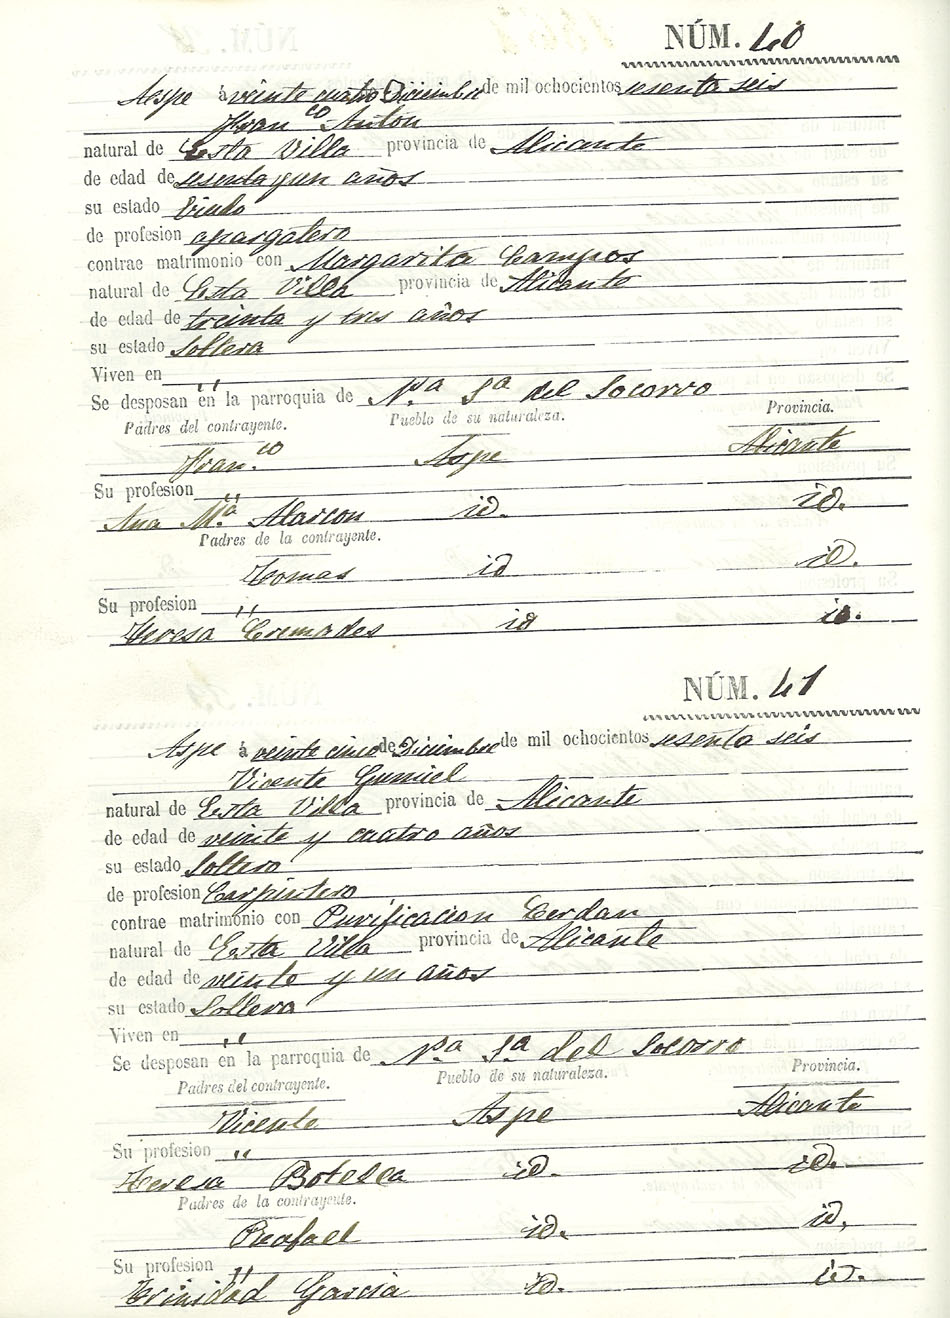 NÚM. 40
Aespe á veinte cuatro Diciembre de mil ochocientos sesenta seis
Fran.co Anton
natural de Esta Villa provincia de Alicante
de edad de sesenta y un años
su estado Viudo
de profesion apargatero
contrae matrimonio con Margarita Campos
natural de Esta Villa provincia de Alicante
de edad de treinta y tres años
su estado Soltera
Viven en "
Se desposan en la parroquia de N.ª Sª del Socorro
Padres del contrayente. Pueblo de su naturaleza. Provincia.
Fran.co Aspe Alicante
Su profesion "
Ana M.ª Alarcon id. id.
Padres de la contrayente.
Tomas id id.
Su profesion "
Teresa Cremades id id.
NÚM. 41
Aspe á veinte cinco de Diciembre de mil ochocientos sesenta seis
Vicente Gumiel
natural de Esta Villa provincia de Alicante
de edad de veinte y cuatro años
su estado Soltero
de profesion Carpintero
contrae matrimonio con Purificacion Cerdan
natural de Esta Villa provincia de Alicante
de edad de veinte y un años
su estado Soltera
Viven en "
Se desposan en la parroquia de N.ª Sª del Socorro
Padres del contrayente. Pueblo de su naturaleza. Provincia.
Vicente Aspe Alicante
Su profesion "
Teresa Botella id. id.
Padres de la contrayente.
Rafael id. id.
Su profesion "
Trinidad Garcia id. id.